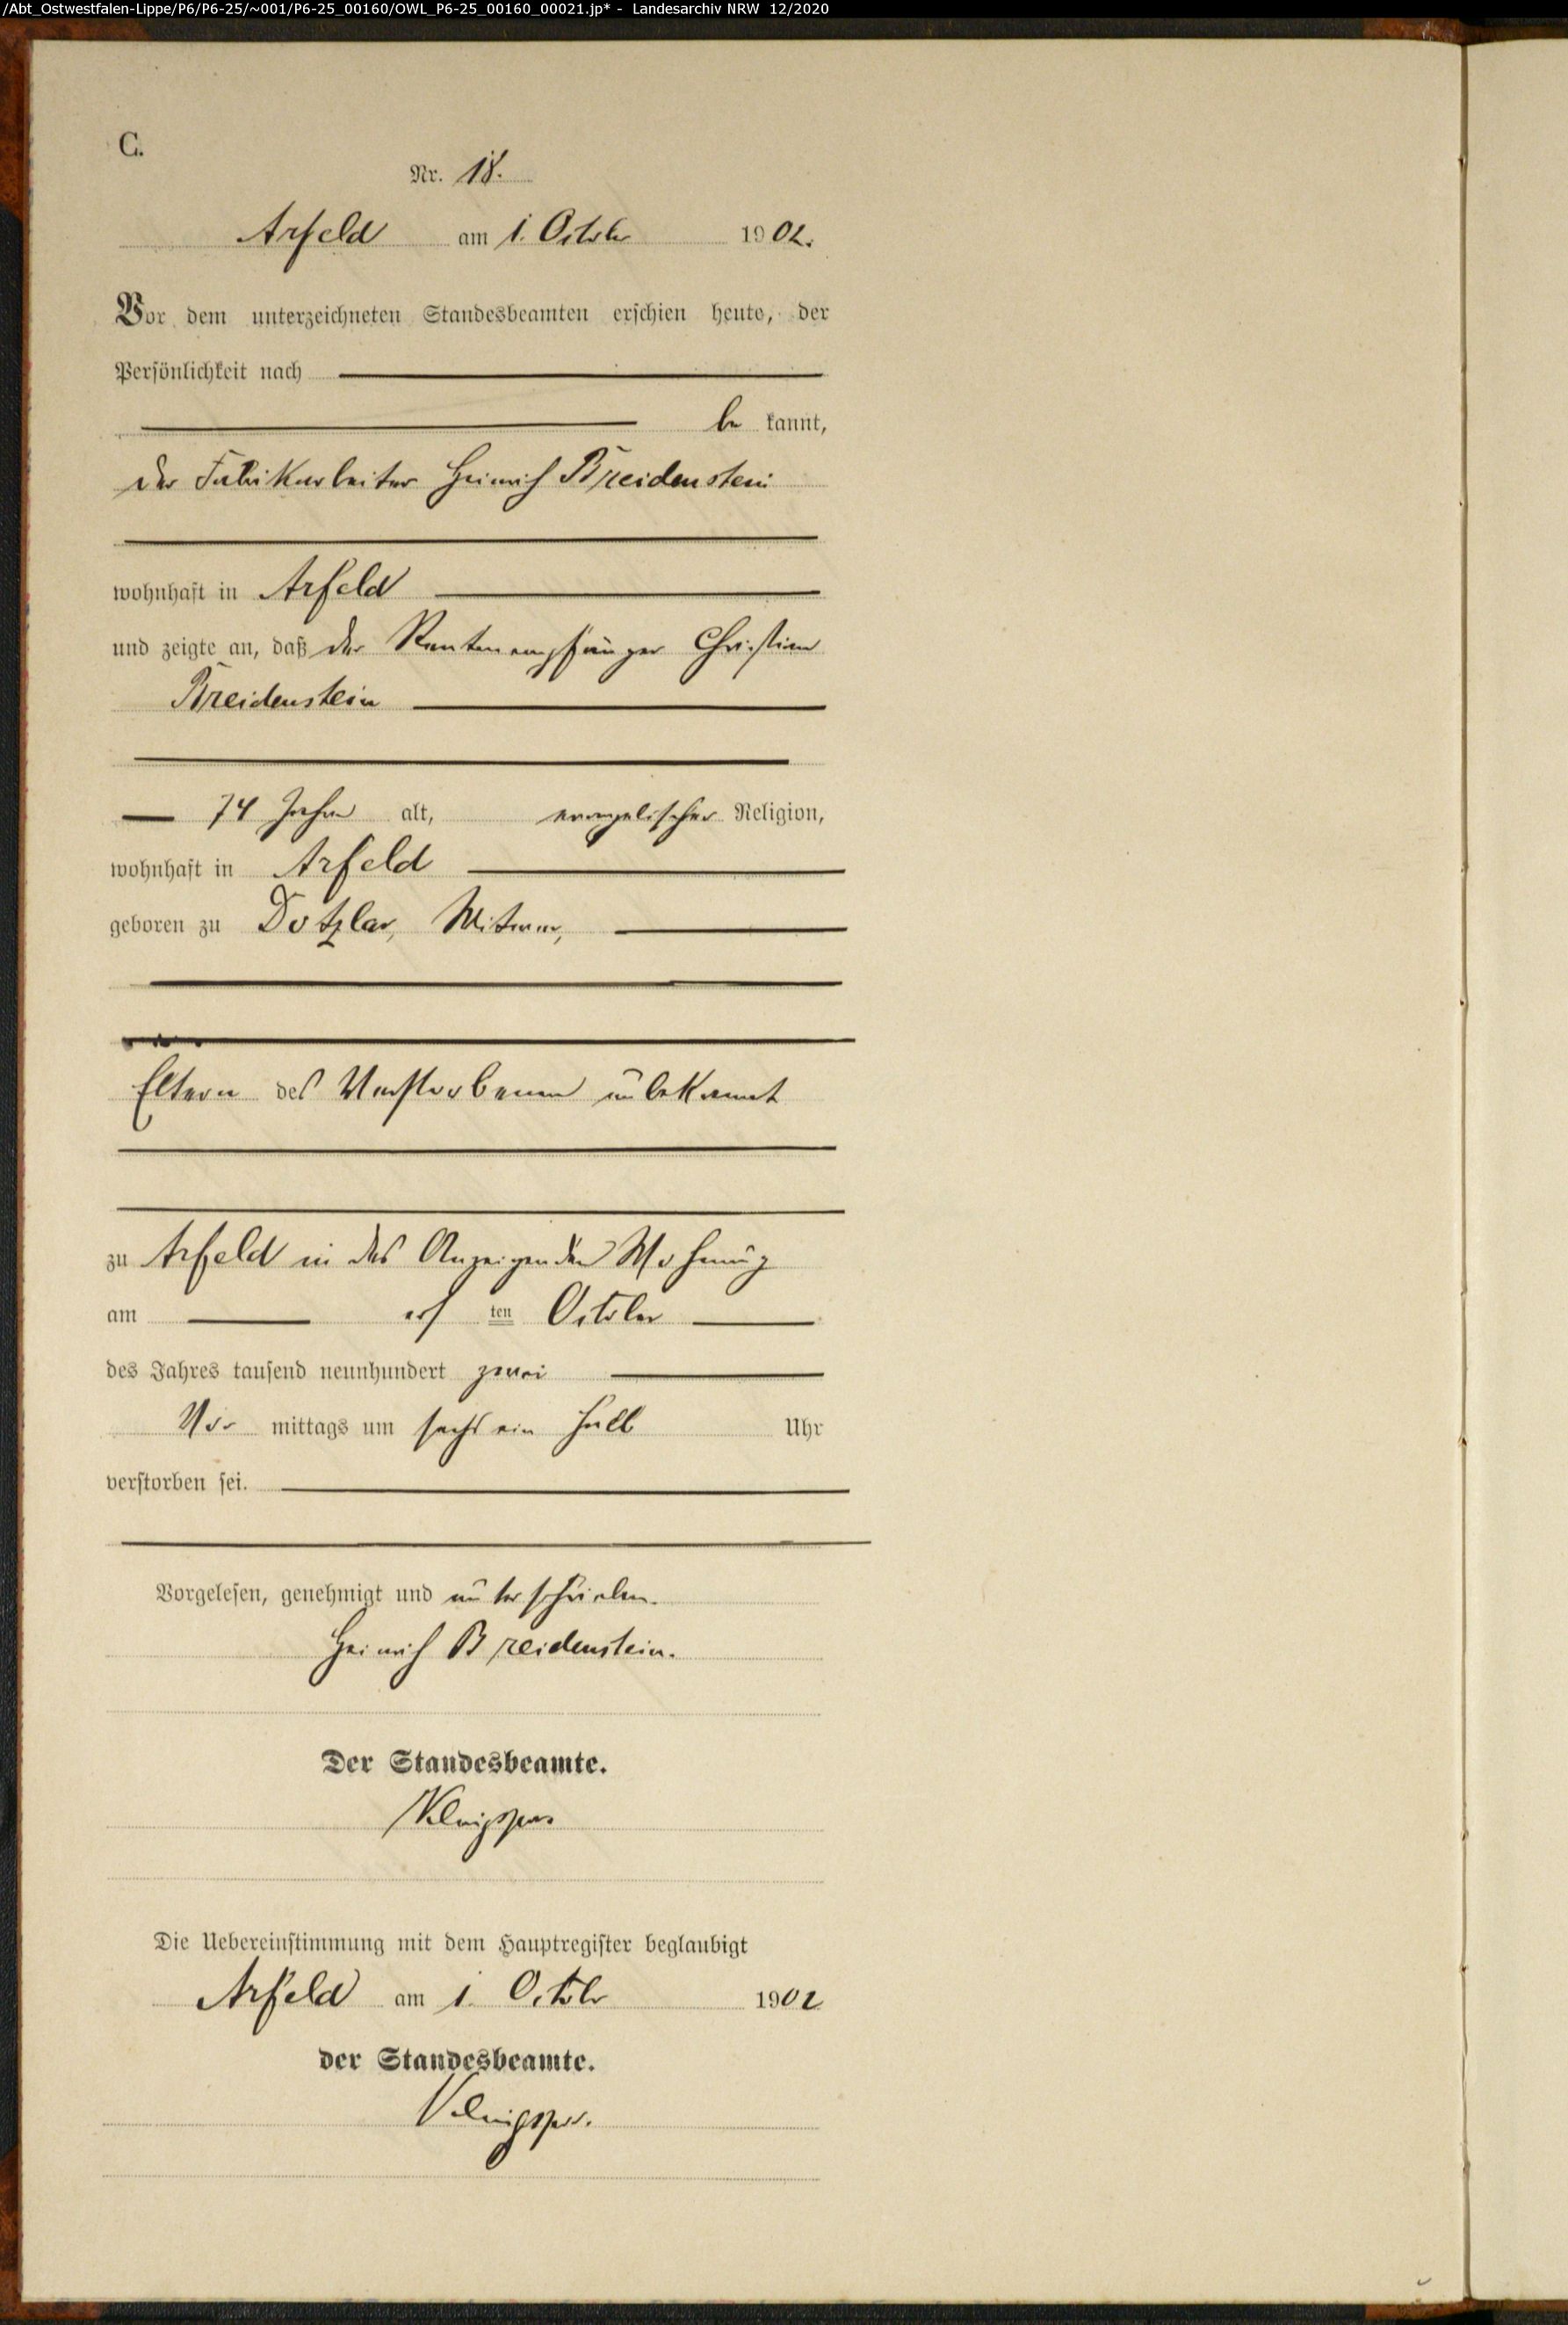 /Abt_Ostwestfalen-Lippe/P6/P6-25/~001/P6-25_00160/OWL_P6-25_00160_00021.jp* - Landesarchiv NRW 12/2020
C.
Nr. 18.
Arfeld am 1. October 1902.
Vor dem unterzeichneten Standesbeamten erschien heute, der
Persönlichkeit nach
be kannt,
der Fabrikarbeiter Heinrich Breidenstein
wohnhaft in Arfeld
und zeigte an, daß der Rentenempfänger Christian
Breidenstein
74 Jahre alt, evangelischer Religion,
wohnhaft in Arfeld
geboren zu Dotzlar, Witwer,
Eltern des Verstorbenen unbekannt
zu Arfeld in des Anzeigenden Wohnung
am ersten October
des Jahres tausend neunhundert zwei
Vor mittags um sechs ein halb Uhr
verstorben sei.
Vorgelesen, genehmigt und unterschrieben.
Heinrich Breidenstein.
Der Standesbeamte.
Die Uebereinstimmung mit dem Hauptregister beglaubigt
Arfeld am 1. October 1902
der Standesbeamte.